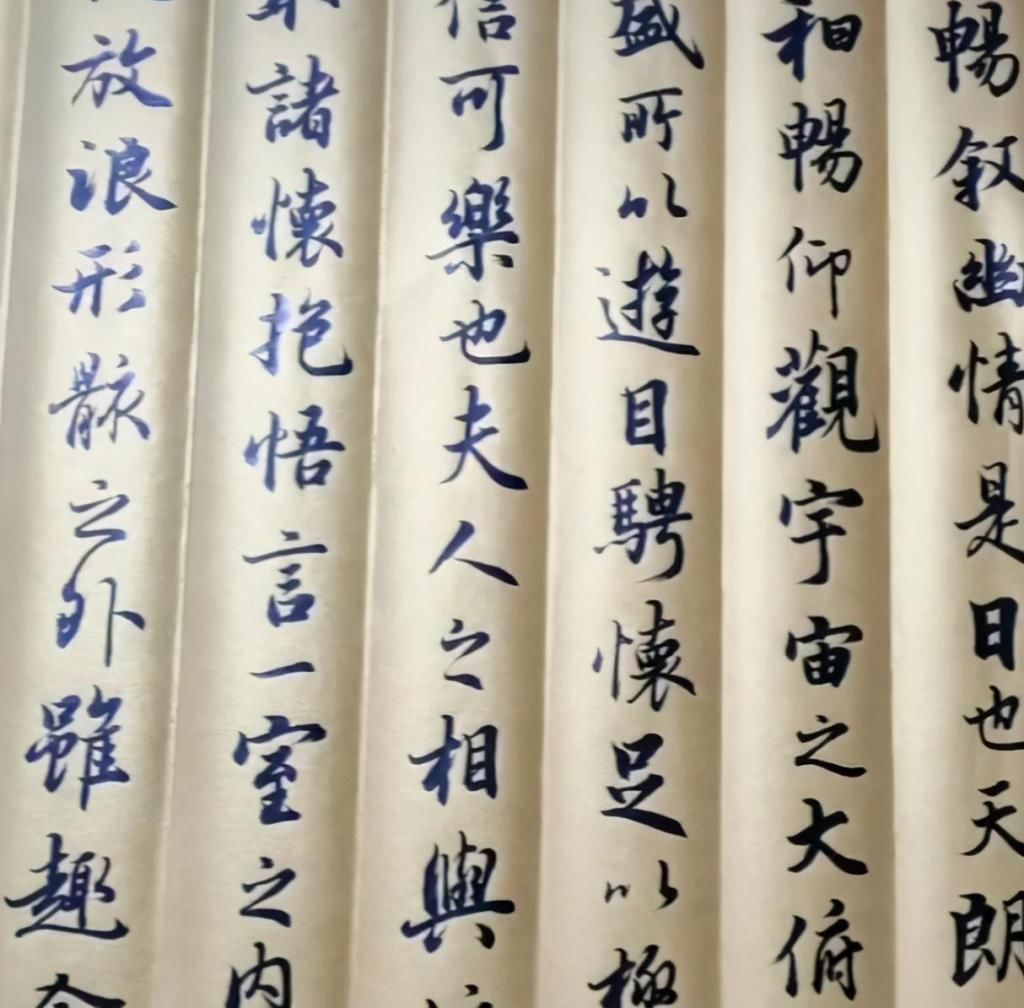 暢叙幽情是日也天朗
和暢仰觀宇宙之大俯
盛所以遊目騁懷足以極
信可樂也夫人之相與
取諸懷抱悟言一室之内
放浪形骸之外雖趣